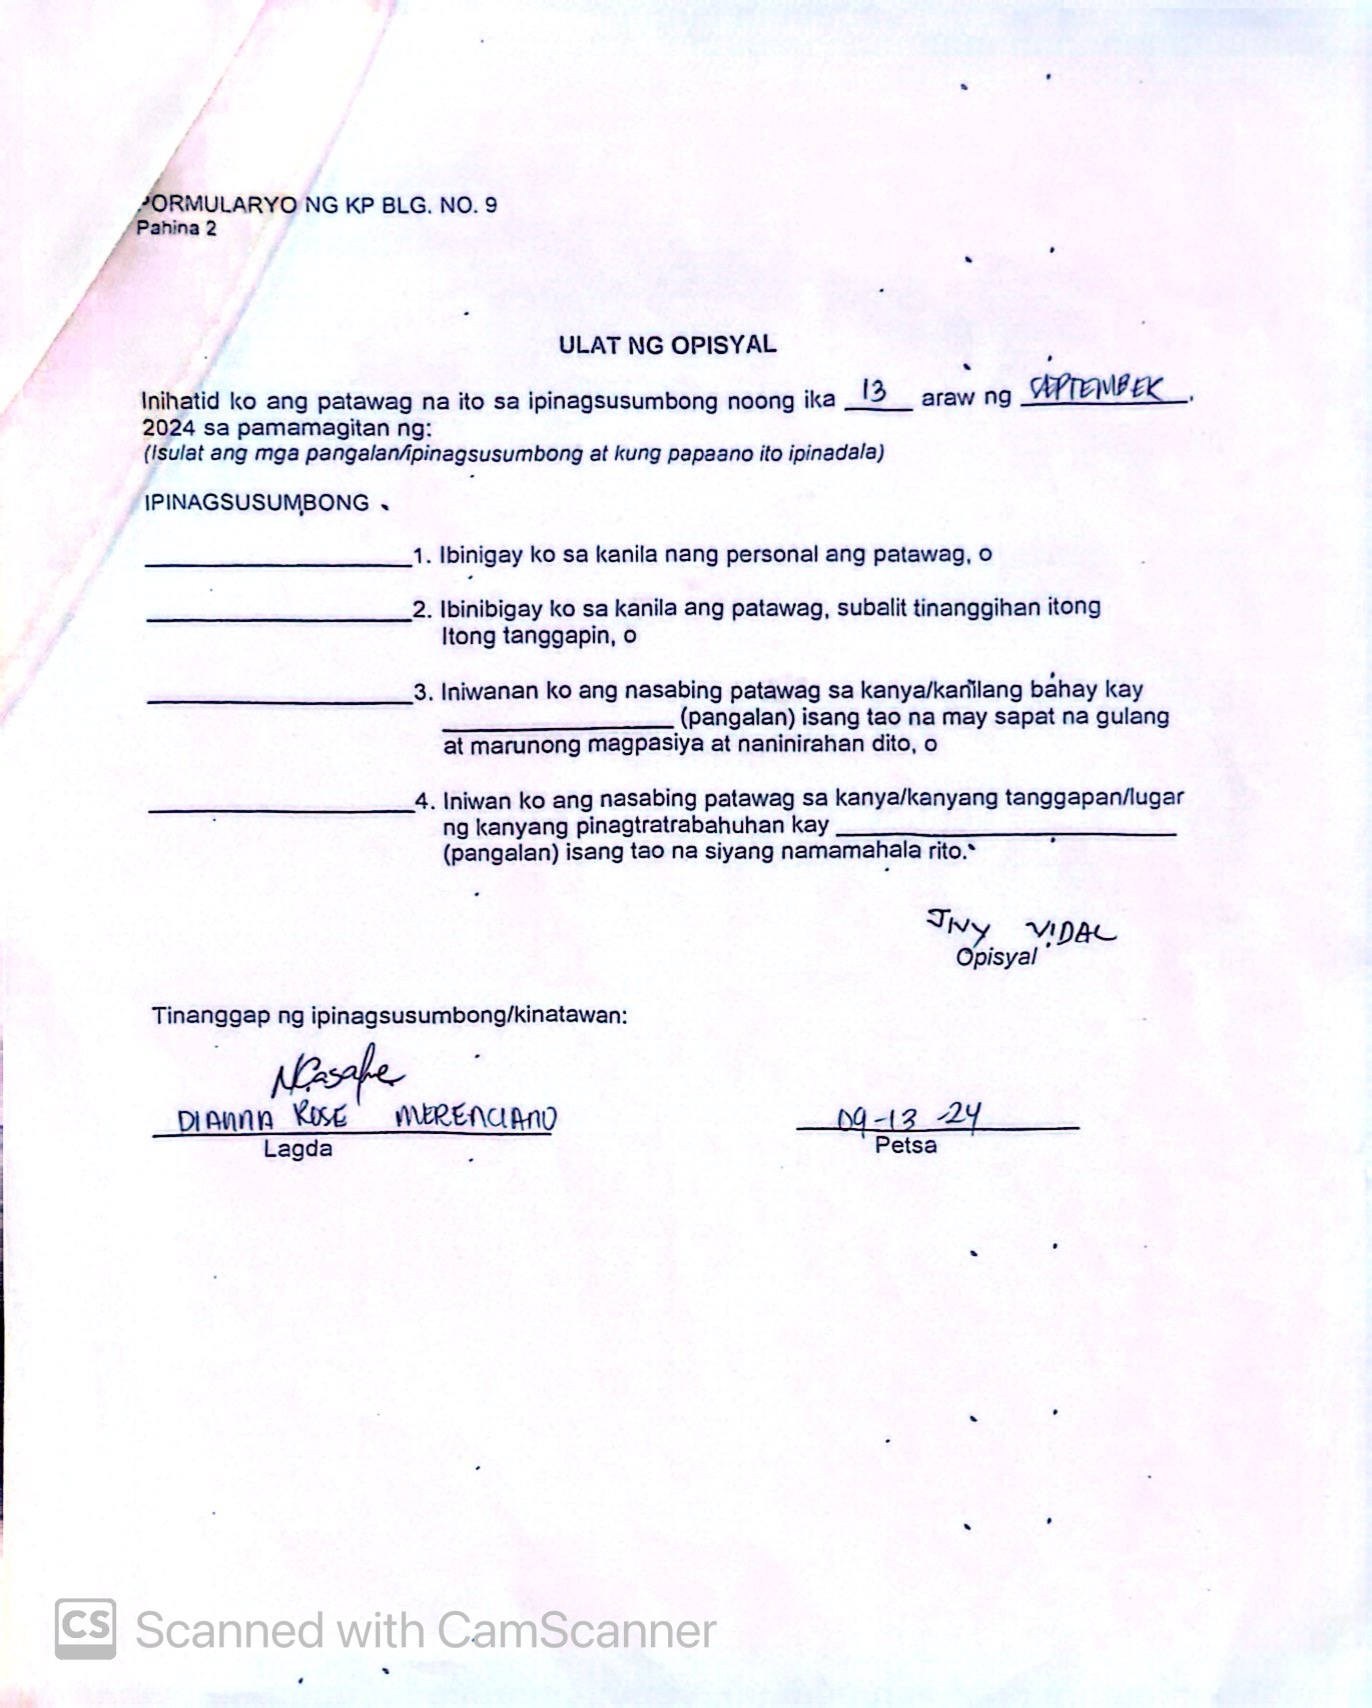 FORMULARYO NG KP BLG. NO. 9
Pahina 2
ULAT NG OPISYAL
Inihatid ko ang patawag na ito sa ipinagsusumbong noong ika 13 araw ng SEPTEMBER,
2024 sa pamamagitan ng:
(Isulat ang mga pangalan/ipinagsusumbong at kung papaano ito ipinadala)
IPINAGSUSUMBONG
____________________1. Ibinigay ko sa kanila nang personal ang patawag, o
____________________2. Ibinibigay ko sa kanila ang patawag, subalit tinanggihan itong
Itong tanggapin, o
____________________3. Iniwanan ko ang nasabing patawag sa kanya/kanilang bahay kay
__________________ (pangalan) isang tao na may sapat na gulang
at marunong magpasiya at naninirahan dito, o
____________________4. Iniwan ko ang nasabing patawag sa kanya/kanyang tanggapan/lugar
ng kanyang pinagtratrabahuhan kay __________________________
(pangalan) isang tao na siyang namamahala rito.
VIDAL
Opisyal
Tinanggap ng ipinagsusumbong/kinatawan:
DIANNA ROSE MERENCIANO 09-13-24
Lagda Petsa
CS Scanned with CamScanner